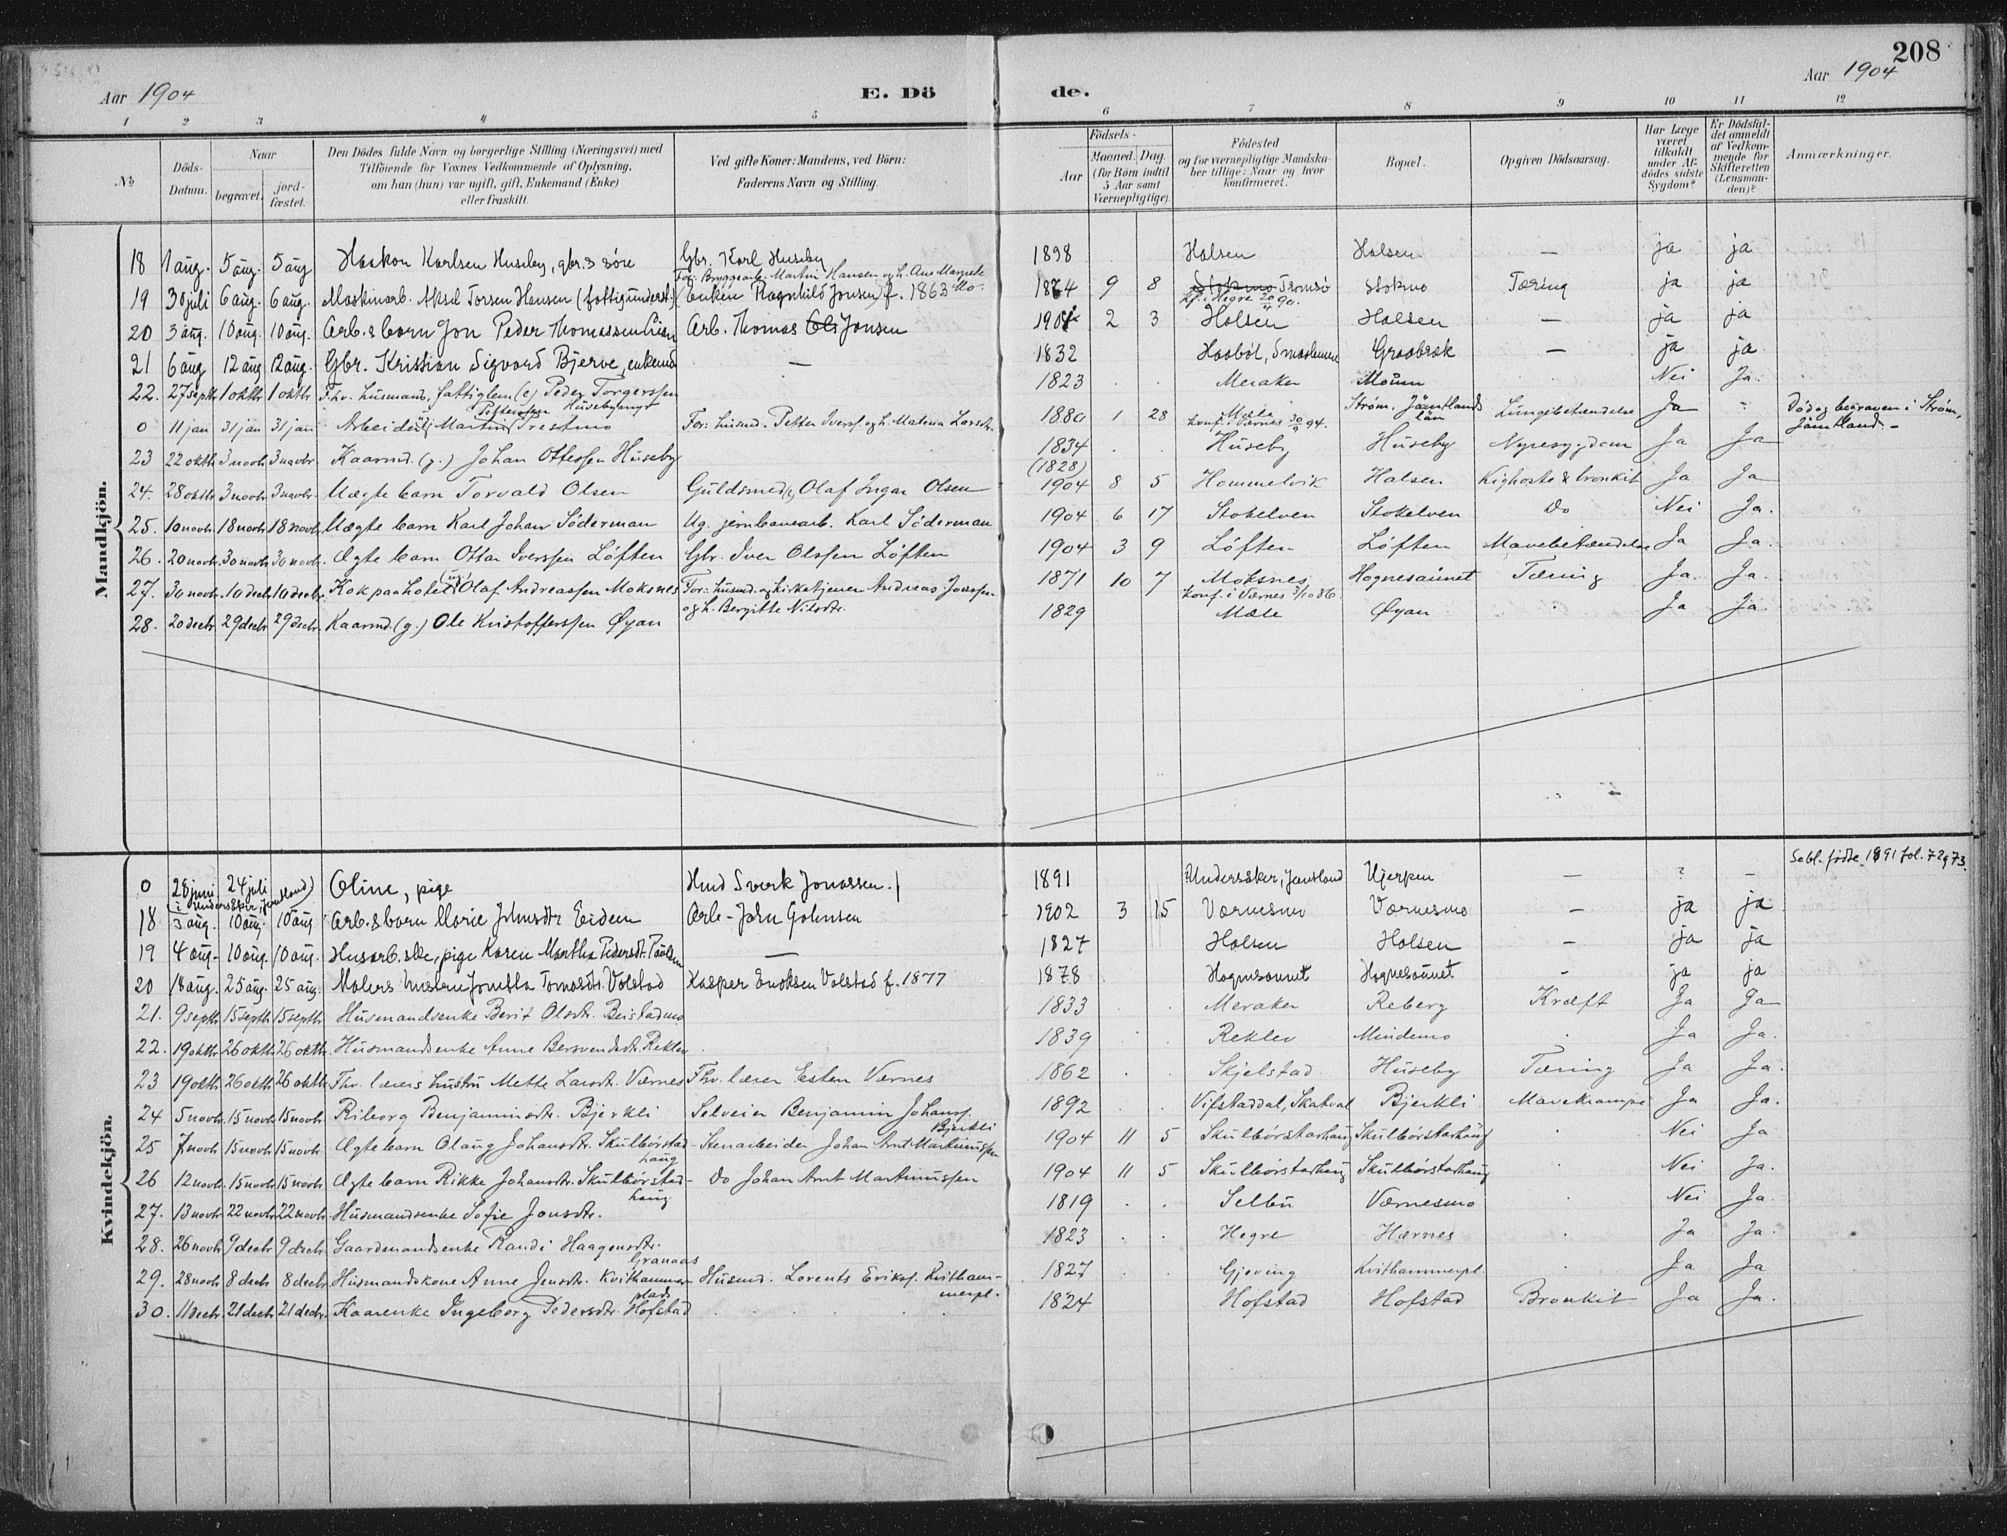 208
Aar 1904
E. Dö
de.
Aar 1904
1 2 3 4 5 6 7 8 9 10 11 12
No.
Döds-Datum.
Naar
begravet.
jordfæstet.
Den Dödes fulde Navn og borgerlige Stilling (Næringsvei) med
Tilföiende for Voxnes Vedkommende af Oplysning,
om han (hun) var ugift, gift, Enkemand (Enke)
eller fraskilt.
Ved gifte Koner: Mandens, ved Börn:
Faderens Navn og Stilling.
Födsels-
Aar
Maaned. Dag.
(for Börn indtil
5 Aar samt
Værnepligtige).
Födested
og for værnepligtige Mandskaber tillige: Naar og hvor
konfirmeret.
Bopæl.
Opgiven Dödsaarsag.
Har Læge
været
tilkaldt
under Afdödes sidste
Sygdom?
Er Dödsfaldet anmeldt
af Vedkommende for
Skifteretten
(Lensmanden)?
Anmærkninger.
Mandkjön.
18 1 aug. 5 aug. 5 aug Haakon Karlsen Huseby, gbr.s søn Gbr. Karl Huseby 1898 Halsen Halsen — ja ja
For: Bryggearb. Martin Hansen og h. Ane Margrete
19 30 juli 6 aug. 6 aug. Maskinarb. Aksel Torsen Hansen (fattigunderst.) Enken Ragnhild Jonsen f. 1863 1874 9 8 Stokmo Tromsø Stokmo Tæring ja ja
kf. i Hegre 20/4 90.
20 3 aug. 10 aug. 10 aug. Arb.s barn Jon Peder Thomassen Arb. Thomas Jonsen 1904 2 3 Halsen Halsen — ja ja
21 6 aug 12 aug 12 aug. Gbr. Kristian Sigvard Bjerve, enkemd — 1832 Graabræk — ja ja
22. 27 septb 1 oktb 1 oktb Fhv. husmand, fattiglem (e) Peder Torgerssen 1823 . . Meraker Moum . Nei Ja.
Husebymyr
0 11 jan 31 jan 31 jan Arbeider Martin Pettersen Trestmo For: husmd. Petter Iverss. og h. Malena Larsdr. 1880 1 28 Mæle Strøm, Jämtlands län Lungebetændelse Ja - Död og begraven i Strøm, Jämtland.-
konf. i Værnes 30/9 94.
23 22 oktb 3 novb 3 novbr. Kaarmd. (g.) Johan Ottessen Huseby 1834 . . Huseby Huseby Nyresygdom Ja Ja
(1828)
24. 28 oktb 3 novb 3 novb. Uægte barn Torvald Olsen Guldsmed Olaf Ingar Olsen 1904 8 5 Hommelvik Halsen Kighoste & bronkit Ja Ja
25. 10 novb 18 novb 18 novb. Uægte barn Karl Johan Söderman Ug. jernbanearb. Karl Söderman 1904 6 17 Stokelven Stokelven Do Nei Ja.
26. 20 novb 30 novb 30 novb. Ægte barn Ottar Iverssen Løften Gbr. Iver Olssen Løften 1904 3 9 Løften Løften Mavebetændelse Ja Ja.
27. 30 novb 10 decb 10 decb. Kok paa hotel (ug) Olaf Andreassen Moksnes For: husmd. og kirketjener Andreas Jonssen 1871 10 7 Moksnes, Hognesaunet Tæring Ja. Ja.
og h. Bergitte Nilsdr.
konf. i Værnes 3/10 86.
28. 20 decb 29 decb 29 decb. Kaarmd. (g.) Ole Kristofferssen Øyan 1829 Mæle Øyan . Ja Ja.
Kvindekjön.
Se bl. fødte 1891 fol. 72 og 73.
0 28 juni 24 juli Oline, pige Hmd Sverk Jonassen. 1891 Undersaker, Jemtland Hjerpen — ? —
i Undersaker, Jemtland)
18 3 aug. 10 aug. 10 aug. Arb.s barn Marie Johnsdtr Eidem Arb- John Johnsen 1902 3 15 Værnesmo Værnesmo — ja ja
19 4 aug. 10 aug. 10 aug. pige Karen Martha Pedersdtr. — 1827 Halsen Halsen — ja ja
20 18 aug. 25 aug. 25 aug. Malers hustru Jonetta Tomasdtr. Volstad Kasper Enoksen Volstad f. 1877 1878 Hognesaunet Hognesaunet - ja ja
21. 9 septb 15 septb 15 septb Husmandsenke Berit Olsdr. Beistadmo 1833 . . Meraker Reberg Kræft Ja Ja
22. 19 oktb 26 oktb 26 oktb. Husmandsenke Anne Bersvendsdr. Reklev 1839 . . Reklev Mindemo . Ja Ja.
23 19 oktb 26 oktb 26 oktb Fhv. lærers hustru Mette Larsdr. Værnes Fhv. lærer Esten Værnes 1862 . . Skjelstad Huseby Tæring Ja Ja.
24 5 novb 15 novb 15 novb. Riborg Benjaminsdr. Bjerkli Selveier Benjamin Johanss. Bjerkli 1892 . . Vifstaddal, Skatval Bjerkli Mavekrampe Ja Ja.
25 7 novb 15 novb 15 novb Ægte barn Olaug Johansdr. Skulbørstad-haug Stenarbeider Johan Arnt Martinussen 1904 11 5 Skulbørstadhaug Skulbørstadhaug . Nei Ja
26 12 novb. 15 novb 15 novb. Ægte barn Rikke Johansdr. Skulbørstad-haug Do Johan Arnt Martinussen 1904 11 5 Skulbørstadhaug Skulbørstadhaug . Nei Ja.
27. 13 novb 22 novb 22 novb. Husmandsenke Sofie Jonsdr. 1819 . . Selbu Værnesmo . Nei Ja.
28. 26 novb 9 decb 9 decb. Gaardmandsenke Randi Haagensdr. Granaas 1823 . . Hegre Hærnes . Ja Ja.
29. 28 novb 8 decb 8 decb. Husmandskone Anne Jensdr. Kvithammerplads Husmd. Lorents Erikss. Kvithammerpl. 1827 . . Gjeving Kvithammerpl. . Ja Ja
30. 11 decb 21 decb 21 decb. Kaarenke Ingeborg Pedersdr. Hofstad 1824 Hofstad Hofstad Bronkit Ja Ja.